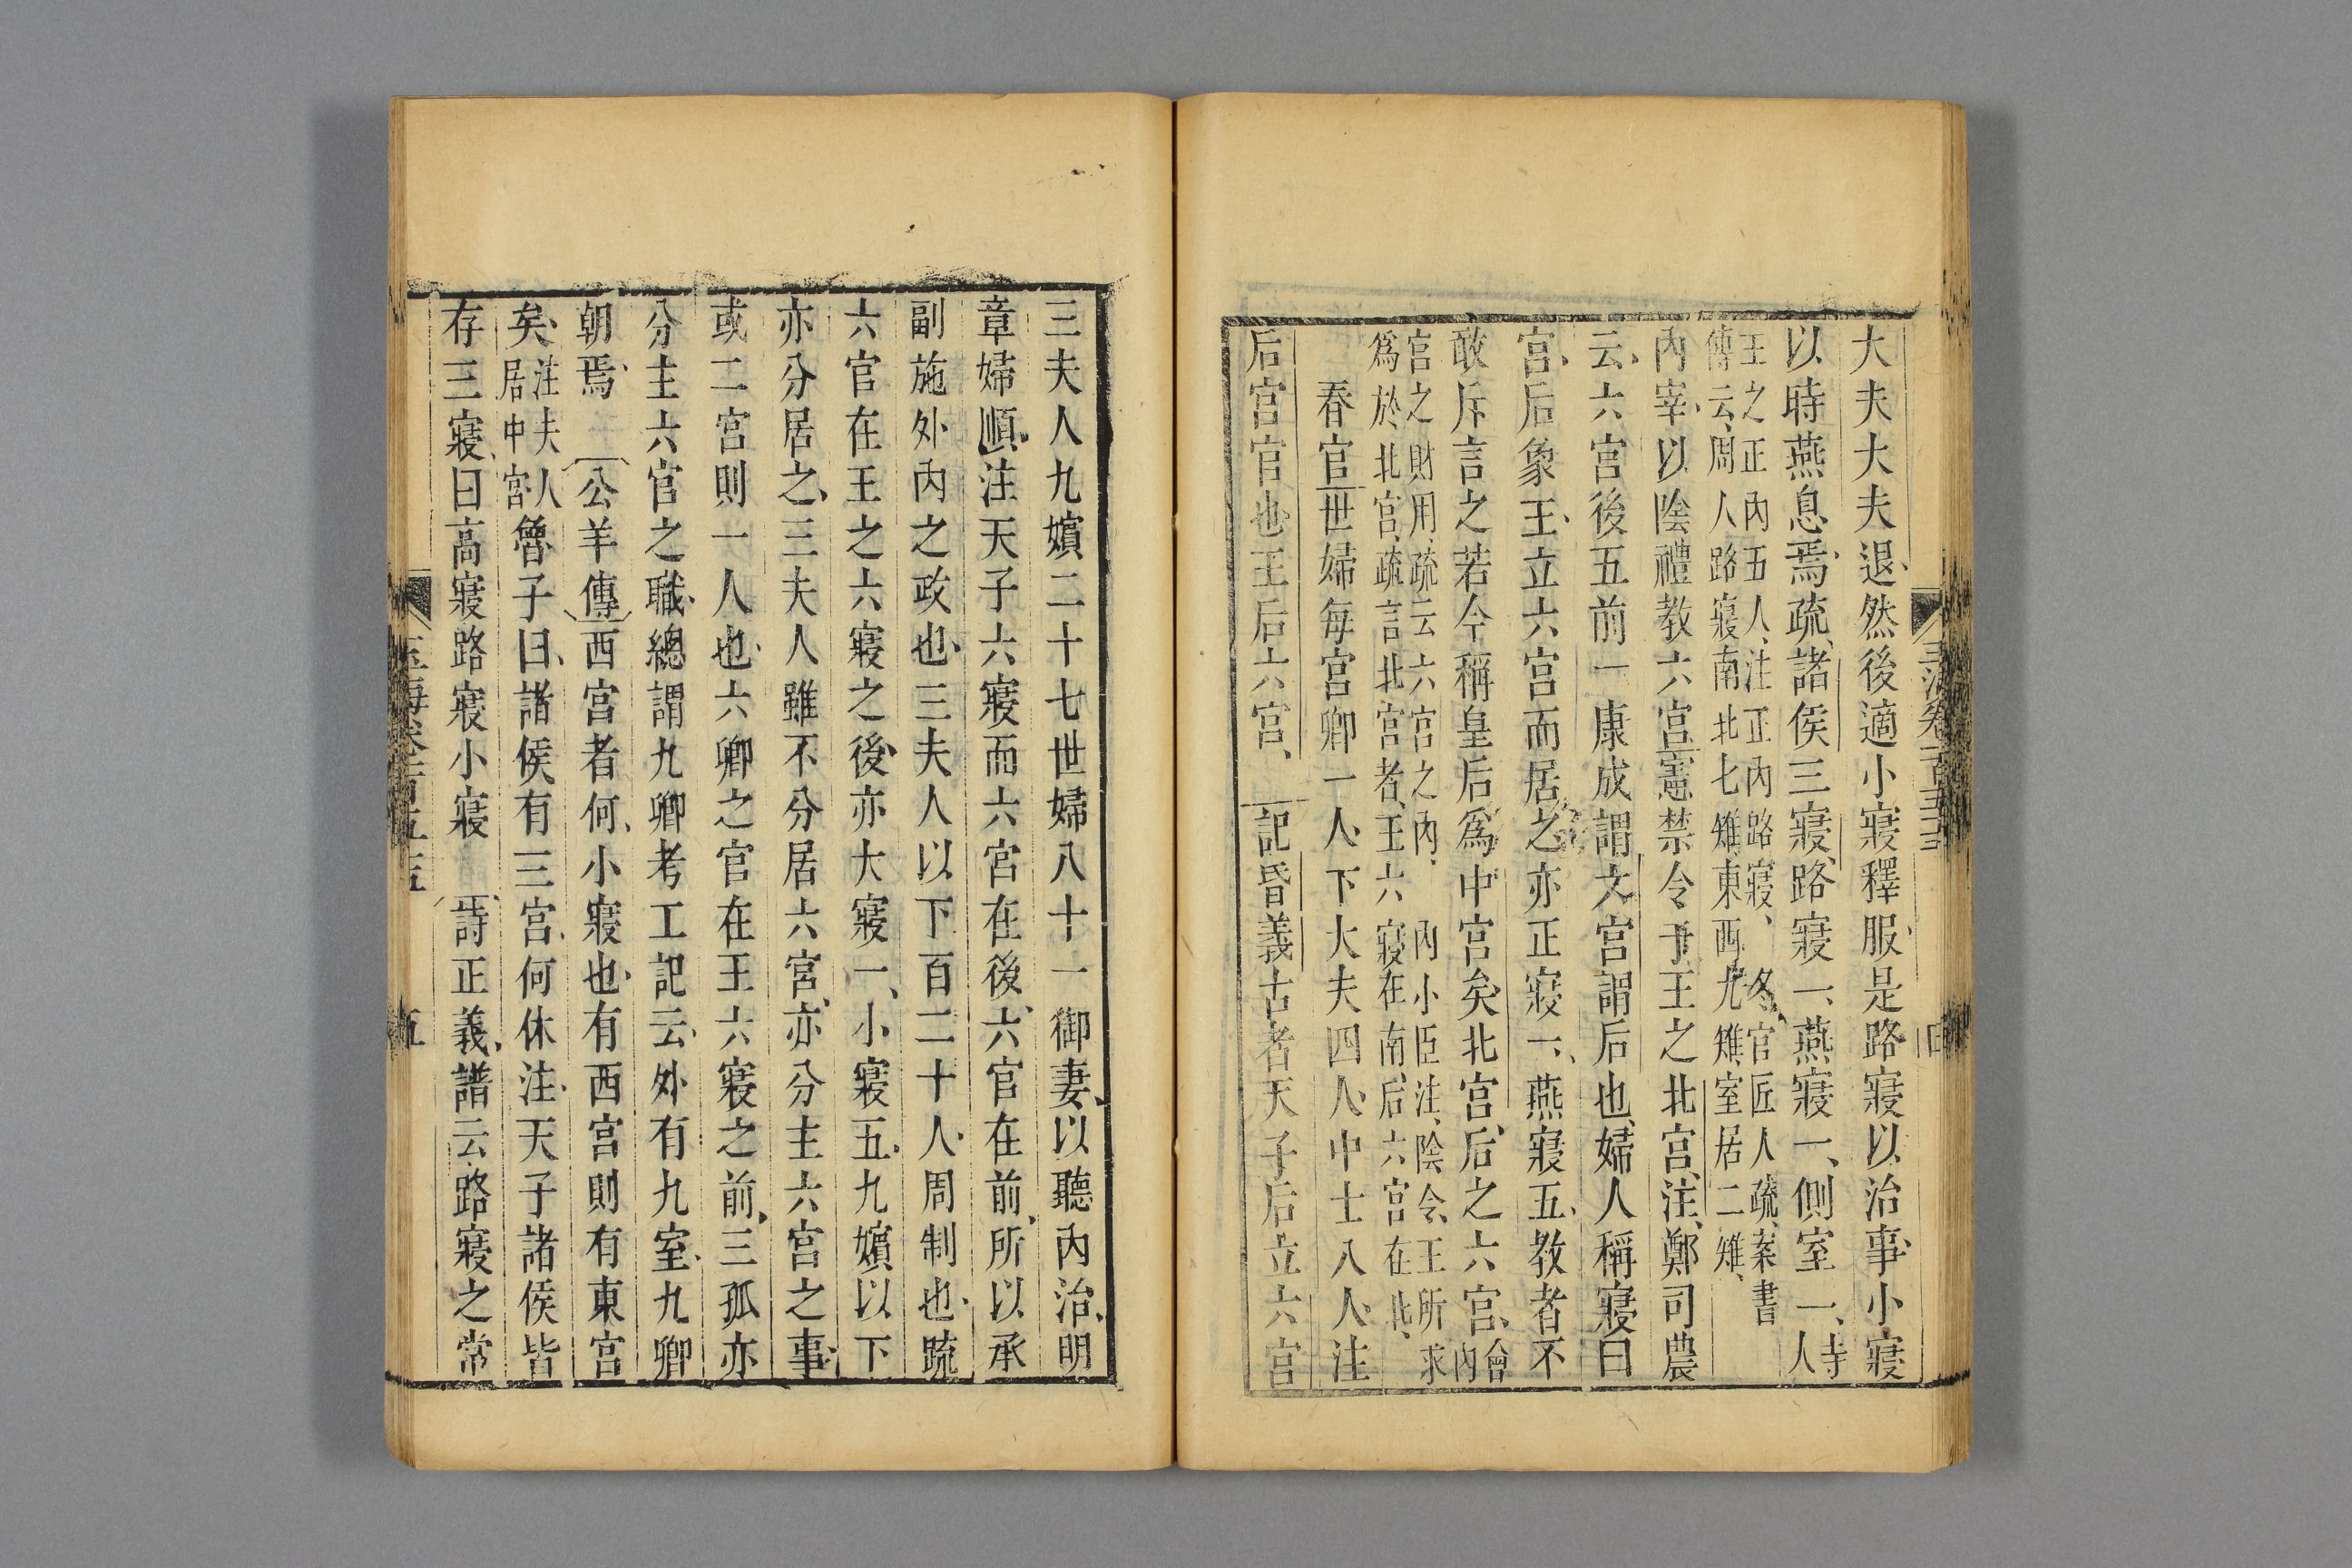 大夫大夫退、然後適小寢釋服、是路寢以治事、小寢
以時燕息焉、疏、諸侯三寢、路寢一、燕寢一、側室一、寺人
王之正內五人、注正內路寢、冬官匠人疏、案書
傳云、周人路寢南北七雉、東西九雉、室居二雉、
內宰、以陰禮教六宮、憲禁令于王之北宮、注、鄭司農
云、六宮後五前一康成謂六宮謂后也、婦人稱寢曰
宮、后象王、立六宮而居之亦正寢一、燕寢五、教者不
敢斥言之若今稱皇后爲中宮矣、北宮、后之六宮、會內
宮之財用、疏云六宮之內、內小臣注、陰令、王所求
爲於北宮、疏言北宮者、王六寢在南、后六宮在北、
春官世婦每宮卿一人、下大夫四人、中士八人、注
后宮官也王后六宮、記昏義古者天子后立六宮
三夫人九嬪二十七世婦八十一御妻、以聽內治、明
章婦順、注天子六寢而六宮在後、六官在前、所以承
副施外內之政也、三夫人以下百二十人、周制也、疏
六官在王之六寢之後、亦大寢一、小寢五、九嬪以下
亦分居之、三夫人雖不分居六宮、亦分主六宮之事、
或二宮則一人也、六卿之官在王六寢之前、三孤亦
分主六官之職、總謂九卿考工記云、外有九室、九卿
朝焉、公羊傳西宮者何、小寢也、有西宮則有東宮
矣、注夫人居中宮、魯子曰、諸侯有三宮、何休注、天子諸侯皆
存三寢、曰高寢路寢小寢 詩正義、譜云路寢之常
玉海卷一百五十五
五